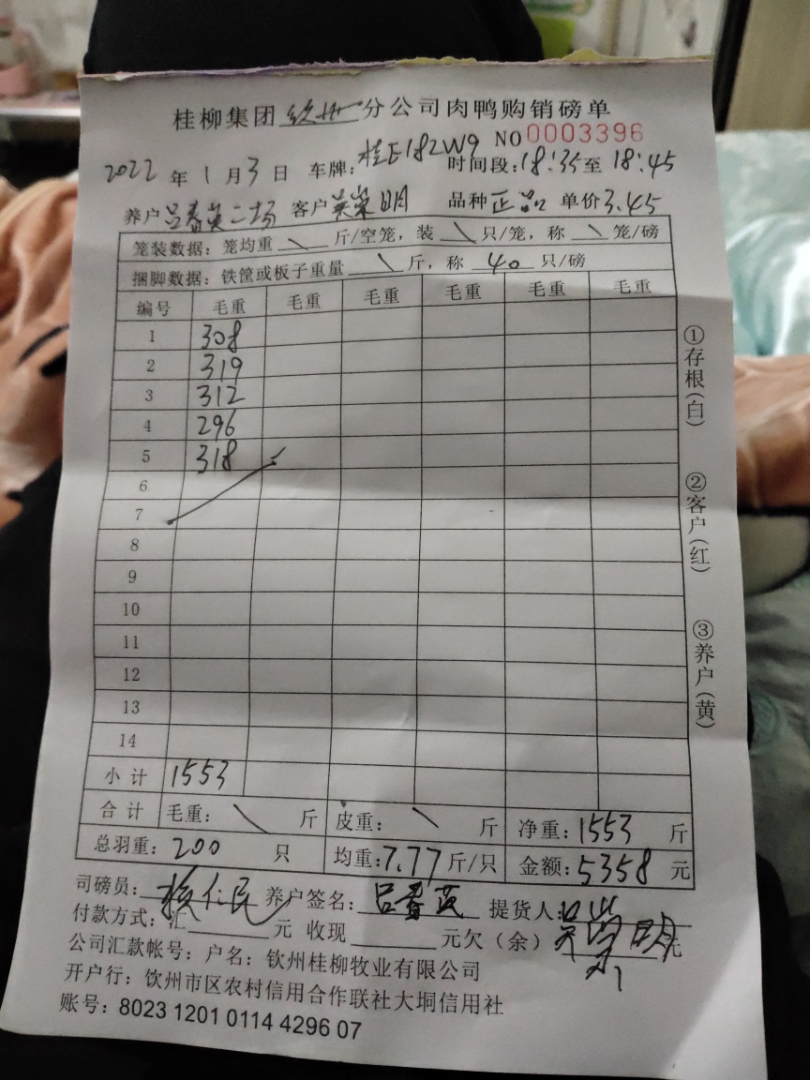 桂柳集团 钦州 分公司肉鸭购销磅单
NO 0003396
2022 年 1 月 3 日 车牌：桂E182W9 时间段：18:35至 18:45
养户 吕春英二场 客户 吴荣明 品种 正品 单价 3.45
笼装数据：笼均重 \ 斤/空笼，装 \ 只/笼，称 \ 笼/磅
捆脚数据：铁筐或板子重量 \ 斤，称 40 只/磅
编号 毛重 毛重 毛重 毛重 毛重 毛重
1 308
2 319
3 312
4 296
5 318
6
7
8
9
10
11
12
13
14
小计 1553
合计 毛重： \ 斤 皮重： \ 斤 净重：1553 斤
总羽重：200 只 均重：7.77 斤/只 金额：5358 元
司磅员： 仁民 养户签名：吕春英 提货人：吴荣明
付款方式：汇 元 收现 元欠（余） 元
公司汇款帐号：户名：钦州桂柳牧业有限公司
开户行：钦州市区农村信用合作联社大垌信用社
账号：8023 1201 0114 4296 07
①存根（白）
②客户（红）
③养户（黄）